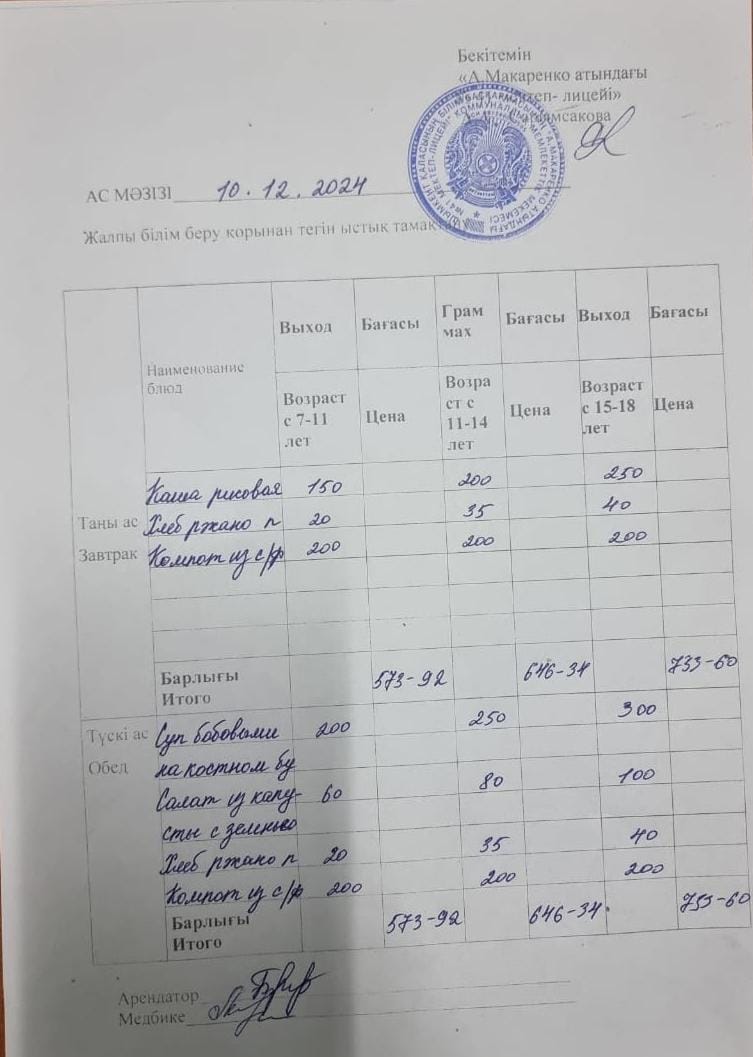 Бекітемін
«А.Макаренко атындағы
мектеп- лицейі»
АС МӘЗІЗІ 10.12.2024
Жалпы білім беру қорынан тегін ыстық тамақтану
Наименование блюд Выход Бағасы Грам мах Бағасы Выход Бағасы
Возраст с 7-11 лет Цена Возра ст с 11-14 лет Цена Возраст с 15-18 лет Цена
Каша рисовая 150 200 250
Таңы ас Хлеб ржано п 20 35 40
Завтрак Компот из с/ф 200 200 200
Барлығы Итого 573-92 646-34 733-60
Түскі ас Суп бобовыми 200 250 300
Обед на костном бу
Салат из капу- 60 80 100
сты с зеленью
Хлеб ржано п 20 35 40
Компот из с/ф 200 200 200
Барлығы Итого 573-92 646-34 733-60
Арендатор
Медбике